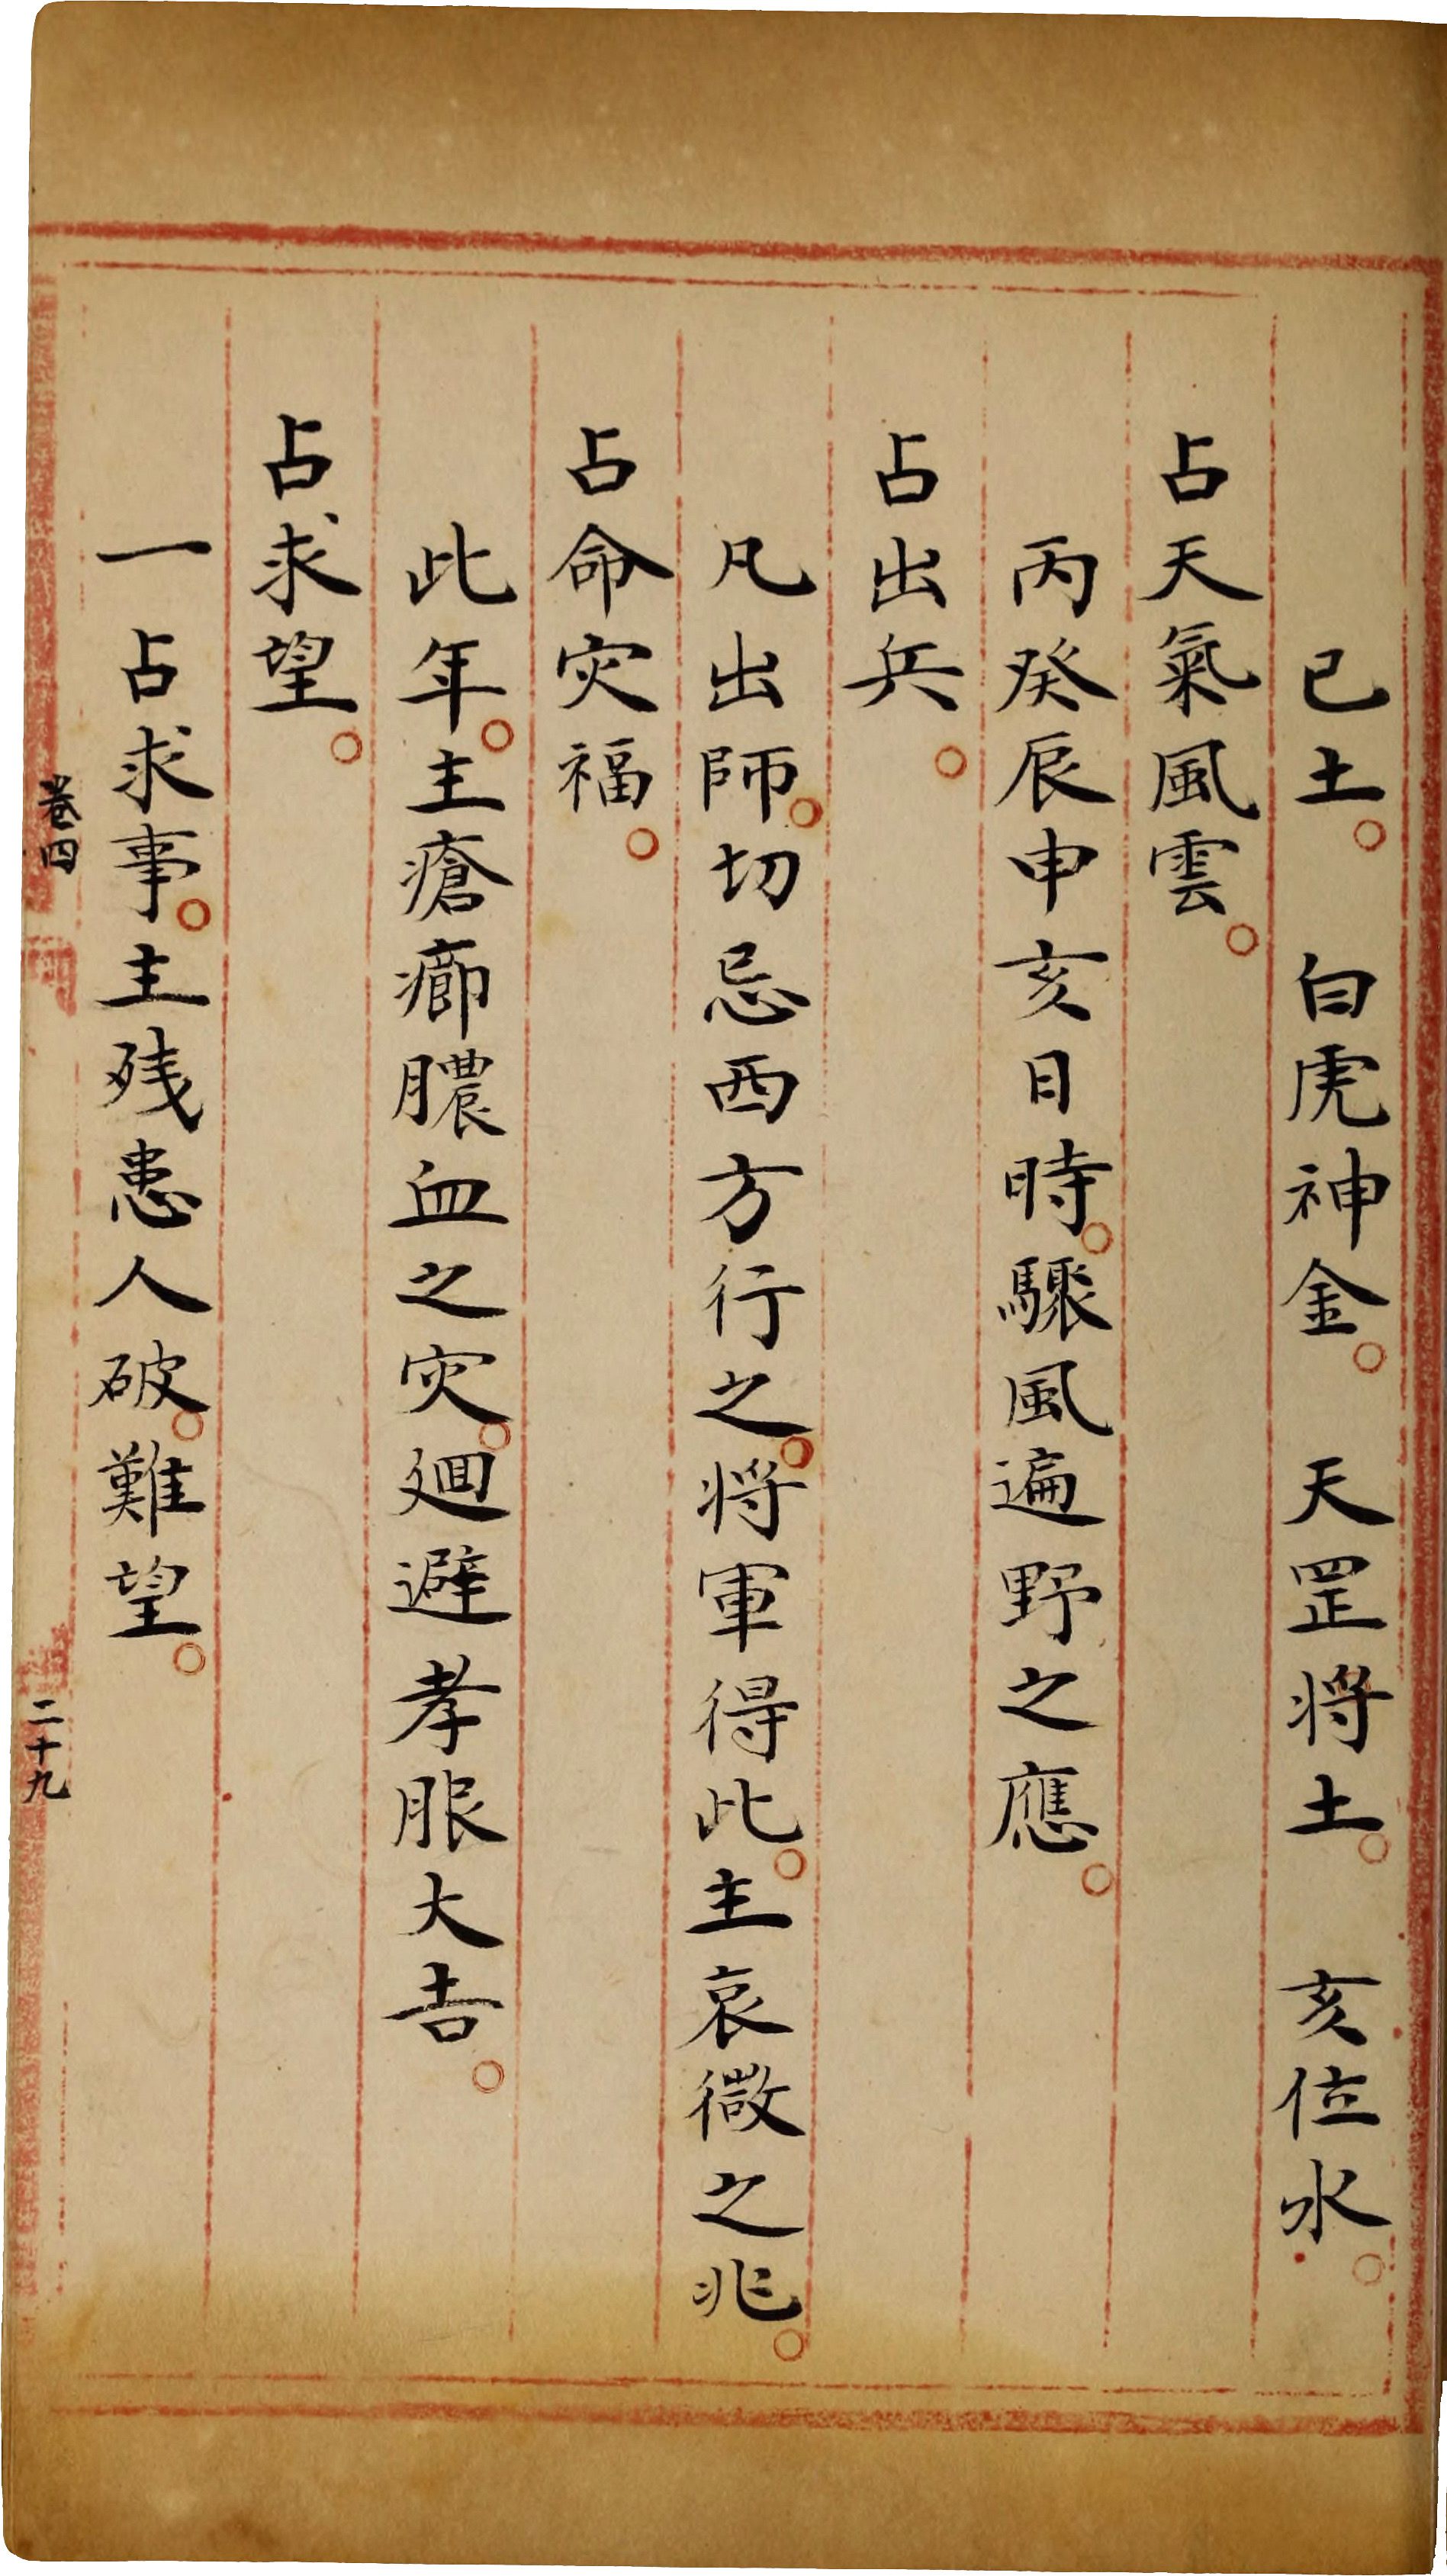 己土。　白虎神金。　天罡将土。　亥位水。
占天氣風雲。
丙癸辰申亥日時。驟風遍野之應。
占出兵。
凡出師。切忌西方行之。将軍得此。主哀微之兆。
占命灾福。
此年。主瘡癤膿血之灾。廻避孝服大吉。
占求望。
一占求事。主残患人破。難望。
卷四
二十九